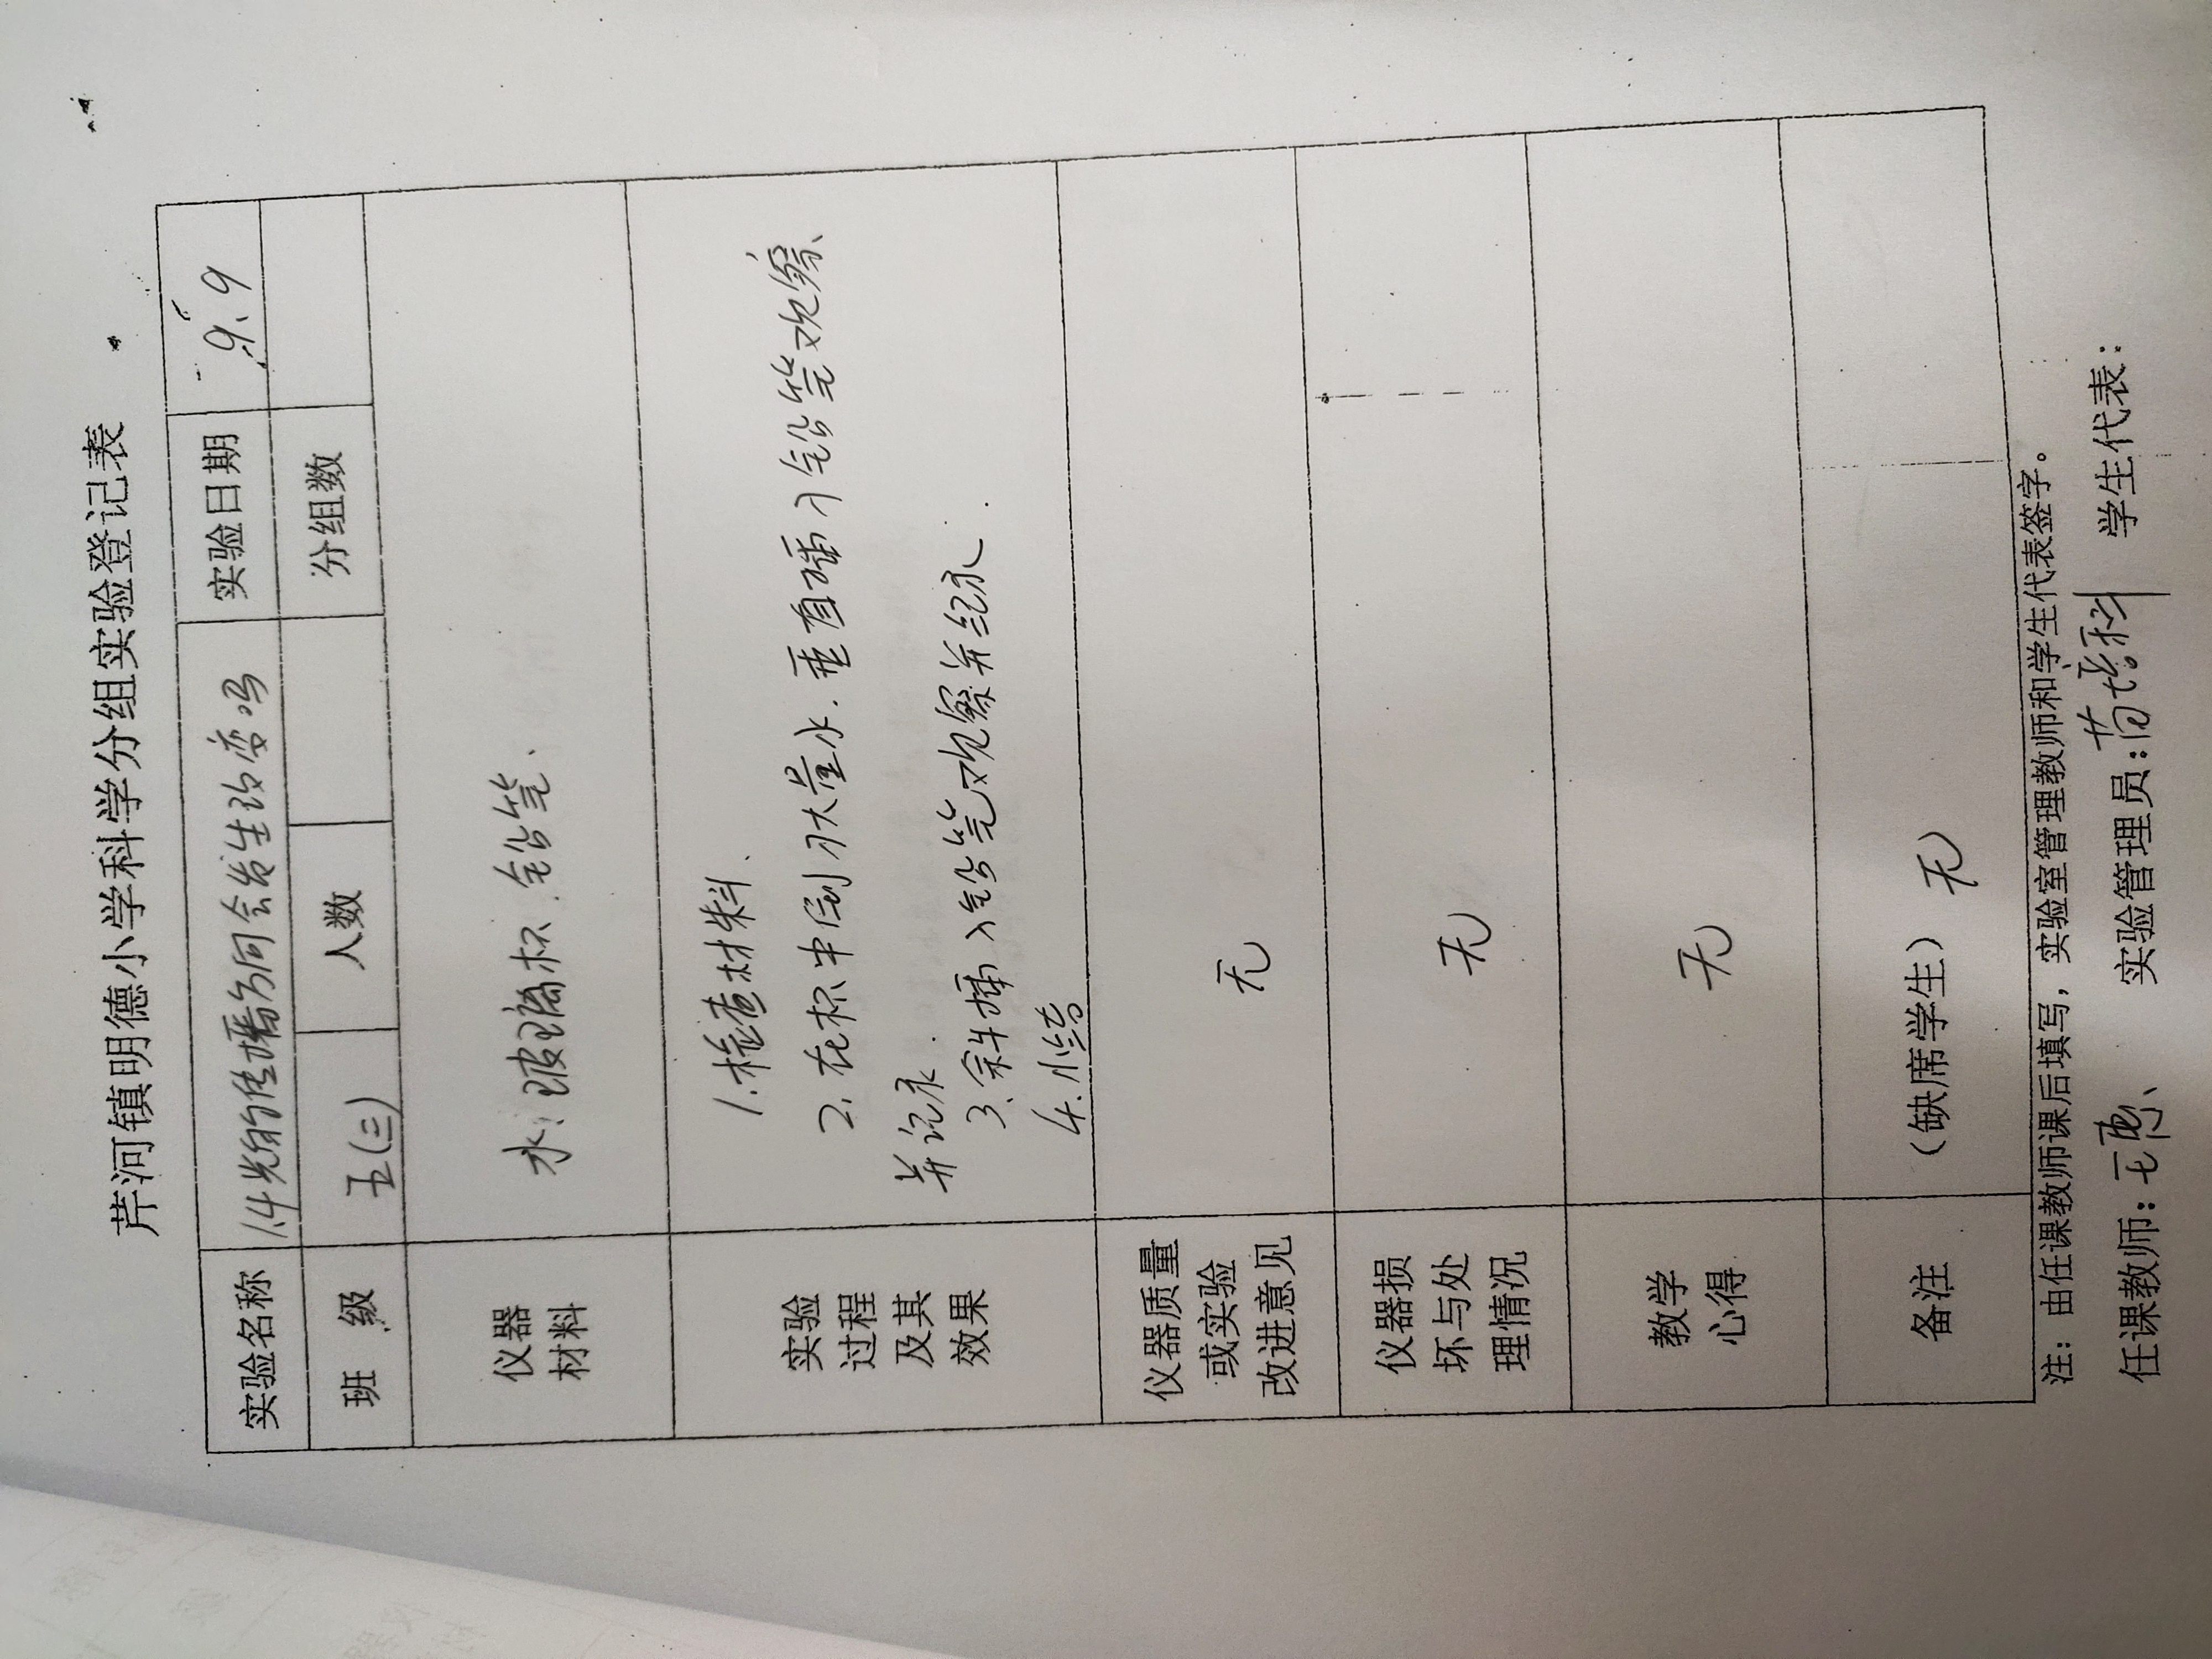 芹河镇明德小学科学分组实验登记表
实验名称 1.4光的传播方向会发生改变吗 实验日期 9.9
班 级 五(三) 人数 分组数
仪器
材料
水. 玻璃杯. 铅笔、
实验
过程
及其
效果
1.检查材料、
2. 在杯中倒入大量水. 垂直插入铅笔观察、
并记录.
3. 斜插入铅笔观察并纪录.
4. 小结
仪器质量
或实验
改进意见
无
仪器损
坏与处
理情况
无
教学
心得
无
备注 （缺席学生） 无
注：由任课教师课后填写，实验室管理教师和学生代表签字。
任课教师: 实验管理员: 学生代表：